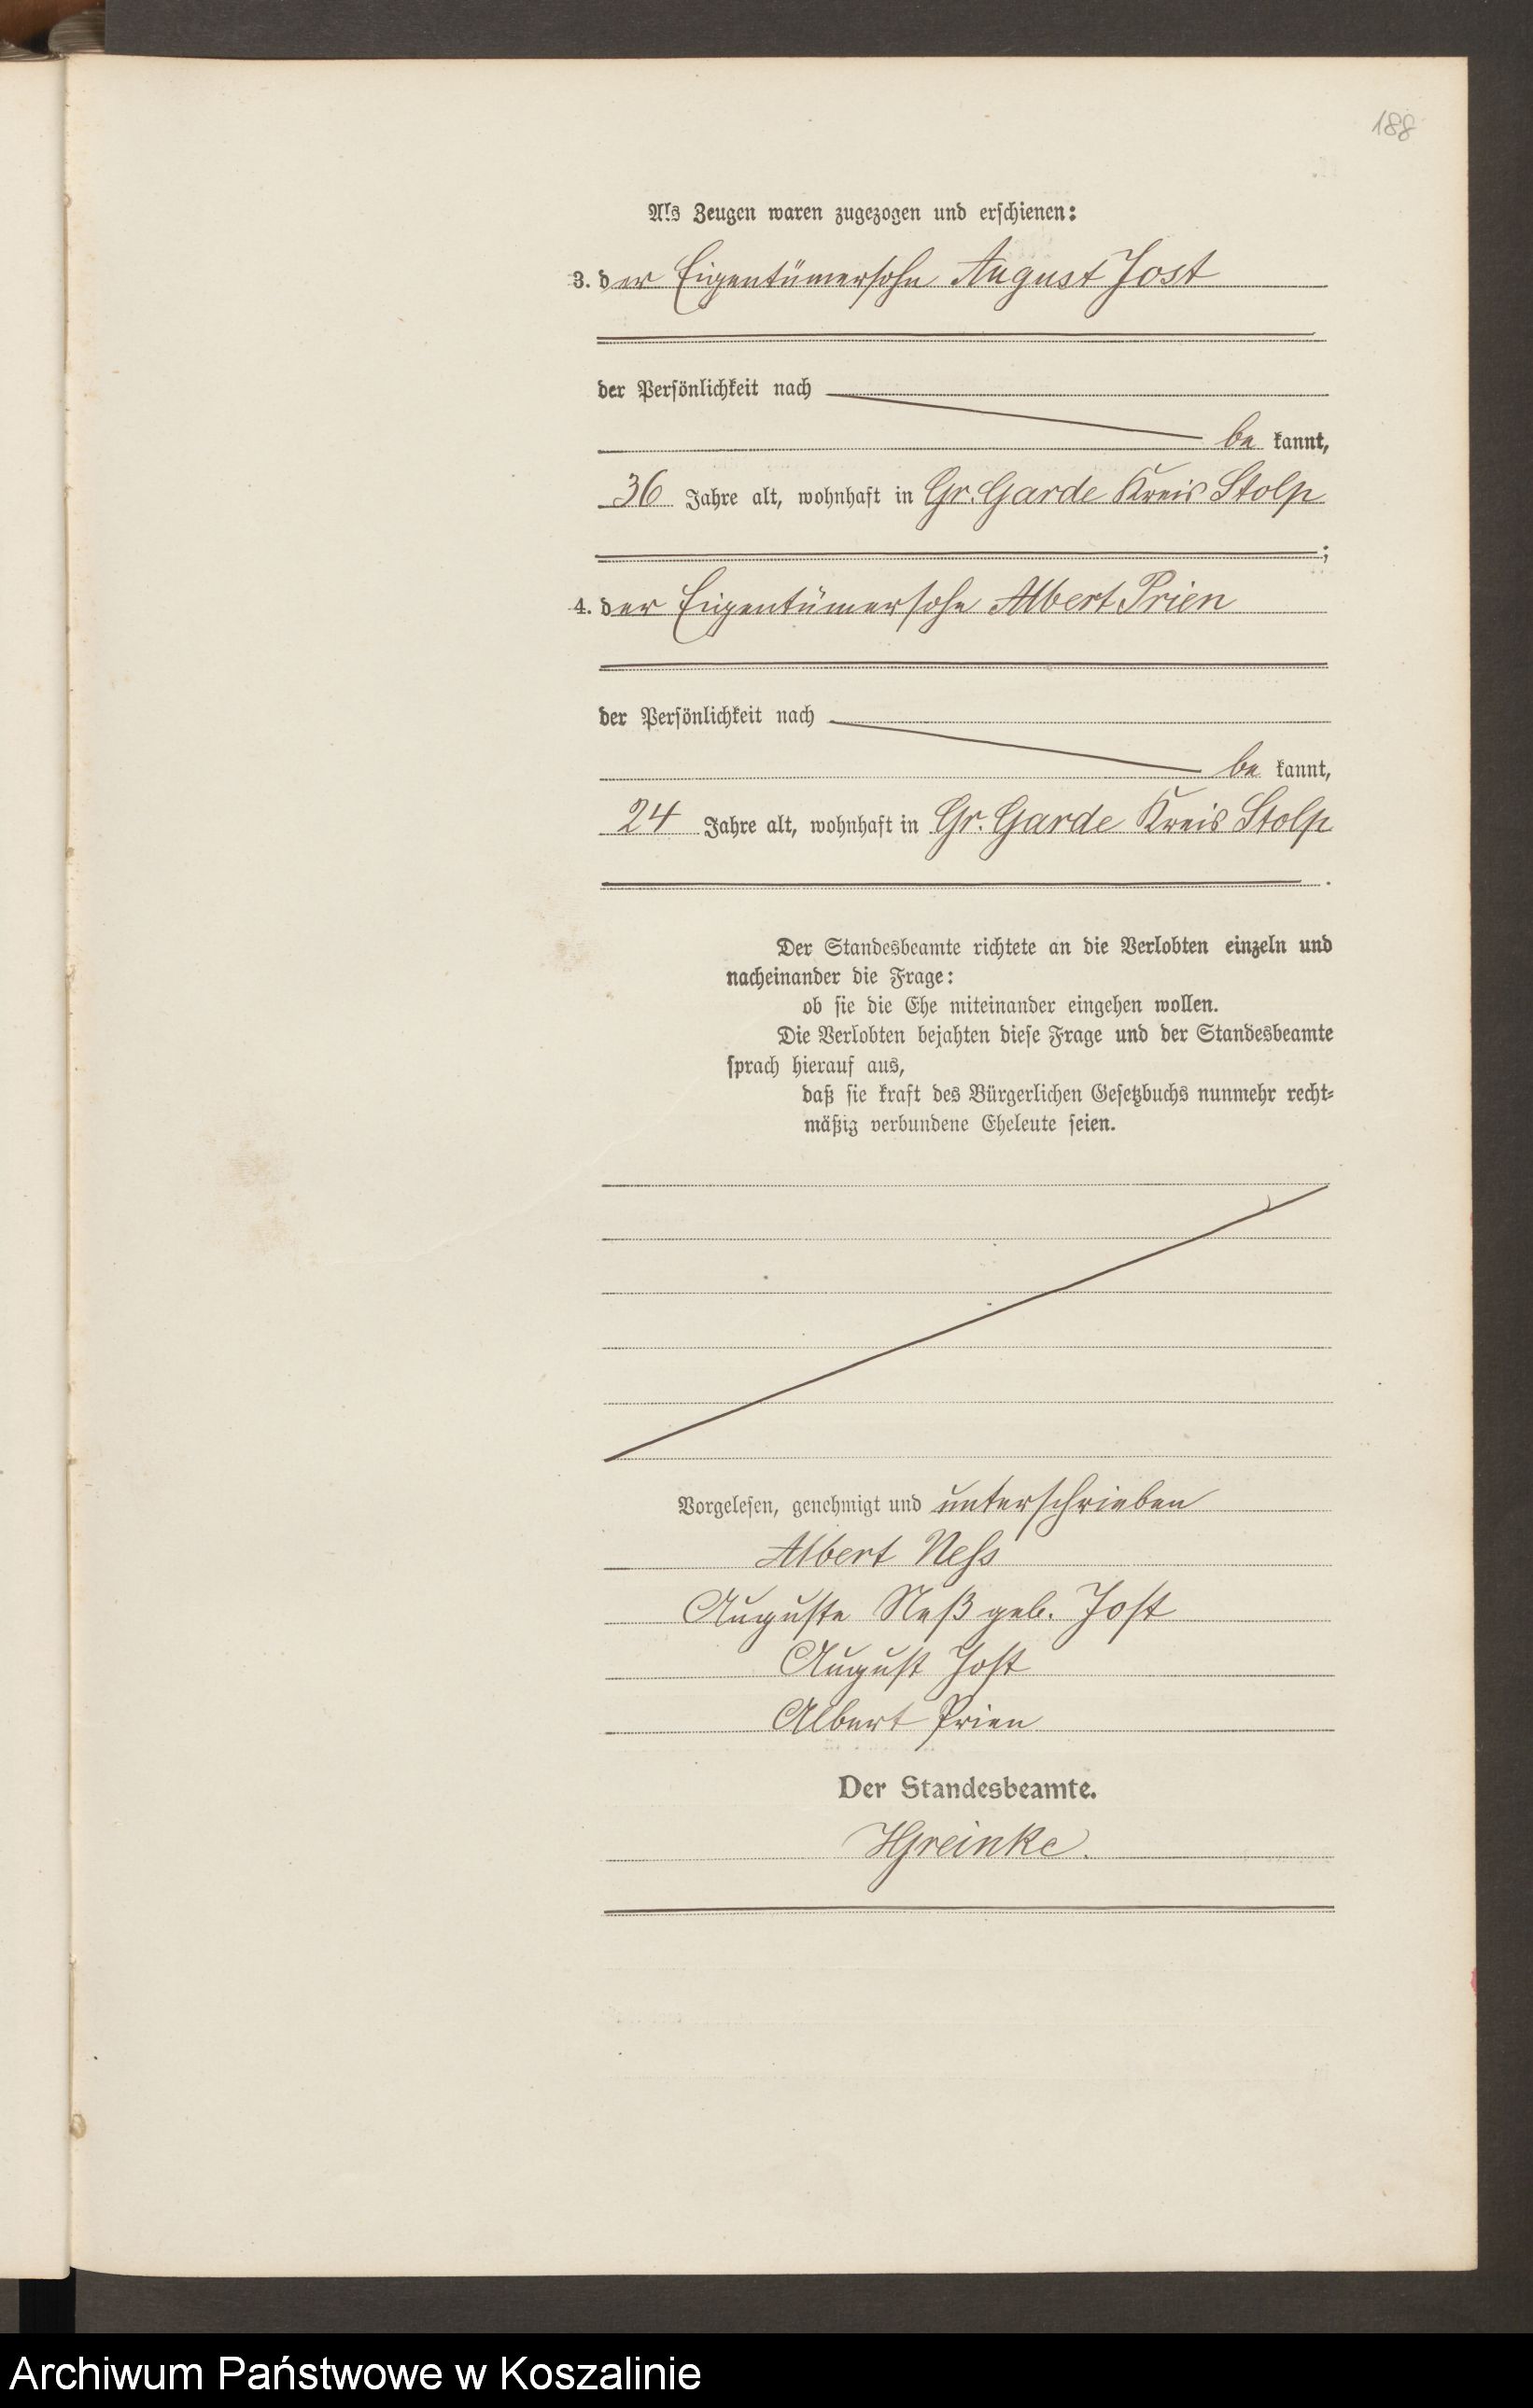 188
Als Zeugen waren zugezogen und erschienen:
3. der Eigentümersohn August Jost
der Persönlichkeit nach
be kannt,
36 Jahre alt, wohnhaft in Gr. Garde Kreis Stolp
;
4. der Eigentümersohn Albert Prien
der Persönlichkeit nach
be kannt,
24 Jahre alt, wohnhaft in Gr. Garde Kreis Stolp
.
Der Standesbeamte richtete an die Verlobten einzeln und
nacheinander die Frage:
ob sie die Ehe miteinander eingehen wollen.
Die Verlobten bejahten diese Frage und der Standesbeamte
sprach hierauf aus,
daß sie kraft des Bürgerlichen Gesetzbuchs nunmehr recht-
mäßig verbundene Eheleute seien.
Vorgelesen, genehmigt und unterschrieben
Albert Neß
Auguste Neß geb. Jost
August Jost
Albert Prien
Der Standesbeamte.
HGreinke.
Archiwum Państwowe w Koszalinie